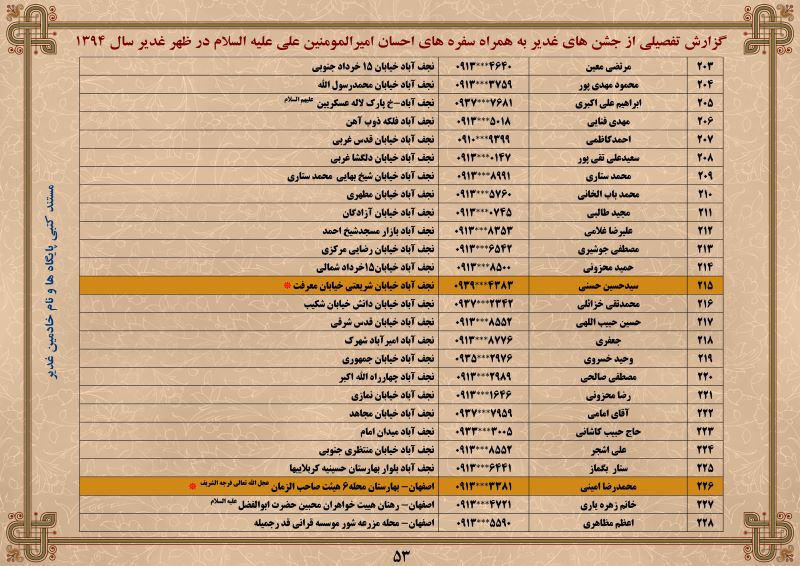 گزارش تفصیلی از جشن های غدیر به همراه سفره های احسان امیرالمومنین علی علیه السلام در ظهر غدیر سال ۱۳۹۴
۲۰۳ مرتضی معین ۰۹۱۳***۴۶۴۰ نجف آباد خیابان ۱۵ خرداد جنوبی
۲۰۴ محمود مهدی پور ۰۹۱۳***۳۷۵۹ نجف آباد خیابان محمدرسول الله
۲۰۵ ابراهیم علی اکبری ۰۹۳۷***۷۶۸۱ نجف آباد-خ پارک لاله عسکریین علیهم السلام
۲۰۶ مهدی فنایی ۰۹۱۳***۵۰۱۸ نجف آباد فلکه ذوب آهن
۲۰۷ احمدکاظمی ۰۹۱۰***۹۳۹۹ نجف آباد خیابان قدس غربی
۲۰۸ سعیدعلی تقی پور ۰۹۱۳***۰۱۴۷ نجف آباد خیابان دلگشا غربی
۲۰۹ محمد ستاری ۰۹۱۳***۸۹۹۱ نجف آباد خیابان شیخ بهایی محمد ستاری
۲۱۰ محمد باب الخانی ۰۹۱۳***۵۷۶۰ نجف آباد خیابان مطهری
۲۱۱ مجید طالبی ۰۹۱۳***۰۷۴۵ نجف آباد خیابان آزادگان
۲۱۲ علیرضا غلامی ۰۹۱۳***۸۳۵۳ نجف آباد بازار مسجدشیخ احمد
۲۱۳ مصطفی جوشیری ۰۹۱۳***۶۵۴۲ نجف آباد خیابان رضایی مرکزی
۲۱۴ حمید محزونی ۰۹۱۳***۸۵۰۰ نجف آباد خیابان۱۵خرداد شمالی
۲۱۵ سیدحسین حسنی ۰۹۳۹***۴۳۸۳ نجف آباد خیابان شریعتی خیابان معرفت *
۲۱۶ محمدتقی خزائلی ۰۹۳۷***۲۳۴۲ نجف آباد خیابان دانش خیابان شکیب
۲۱۷ حسین حبیب اللهی ۰۹۱۳***۸۵۵۲ نجف آباد خیابان قدس شرقی
۲۱۸ جعفری ۰۹۱۳***۸۷۷۶ نجف آباد امیرآباد شهرک
۲۱۹ وحید خسروی ۰۹۳۵***۲۹۷۶ نجف آباد خیابان جمهوری
۲۲۰ مصطفی صالحی ۰۹۱۳***۲۹۸۹ نجف آباد چهارراه الله اکبر
۲۲۱ رضا محزونی ۰۹۱۳***۱۶۴۶ نجف آباد خیابان نمازی
۲۲۲ آقای امامی ۰۹۳۷***۷۹۵۹ نجف آباد خیابان مجاهد
۲۲۳ حاج حبیب کاشانی ۰۹۳۳***۳۰۰۵ نجف آباد میدان امام
۲۲۴ علی اشجر ۰۹۱۳***۸۵۵۲ نجف آباد خیابان منتظری جنوبی
۲۲۵ ستار یگماز ۰۹۱۳***۶۴۴۱ نجف آباد بلوار بهارستان حسینیه کربلاییها
۲۲۶ محمدرضا امینی ۰۹۱۳***۳۳۸۱ اصفهان- بهارستان محله۶ هیئت صاحب الزمان عجل الله تعالی فرجه الشریف *
۲۲۷ خانم زهره یاری ۰۹۱۳***۴۷۲۱ اصفهان- رهنان هییت خواهران محبین حضرت ابوالفضل علیه السلام
۲۲۸ اعظم مظاهری ۰۹۱۳***۵۵۹۰ اصفهان- محله مزرعه شور موسسه قرانی قد رجمیله
مستند کتبی پایگاه ها و نام خادمین غدیر
۵۳